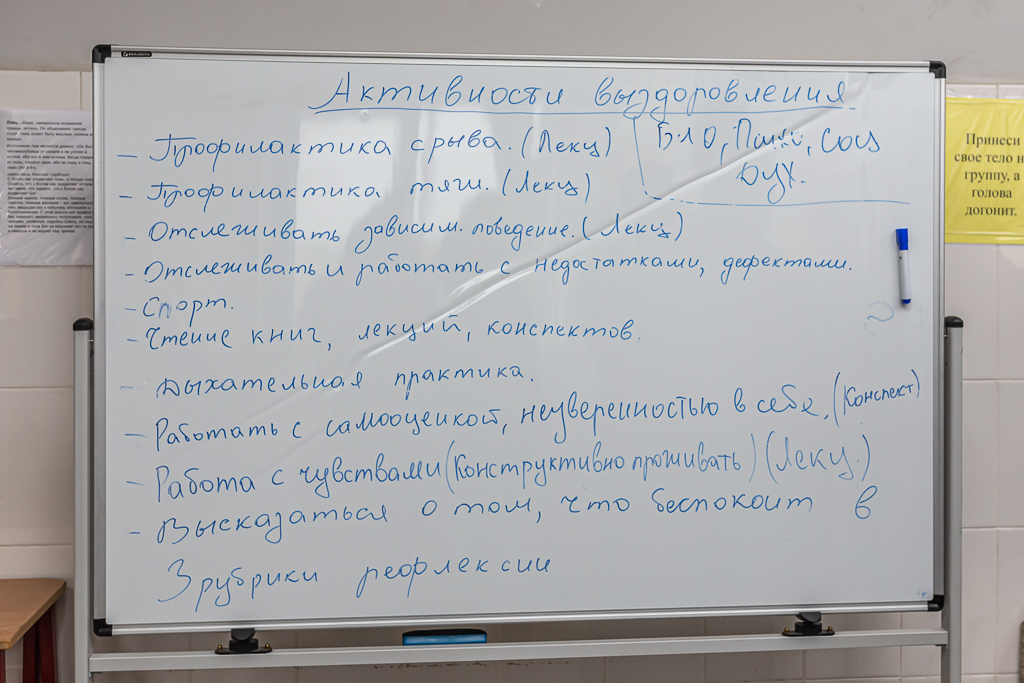 BRAUBERG
Активности выздоровления
Био, Психо, Соц
Дух.
- Профилактика срыва. (Лекц)
- Профилактика тяги. (Лекц)
- Отслеживать зависим. поведение. (Лекц)
- Отслеживать и работать с недостатками, дефектами.
- Спорт.
- Чтение книг, лекций, конспектов.
- Дыхательная практика.
- Работать с самооценкой, неуверенностью в себе, (Конспект)
- Работа с чувствами (Конструктивно проживать) (Лекц.)
- Высказаться о том, что беспокоит в
3 рубрики рефлексии
Принеси
свое тело н
группу, а
голова
догонит.